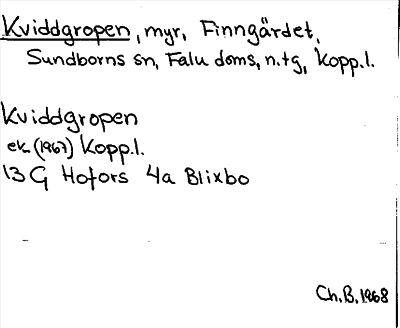 Kviddgropen, myr, Finngärdet,
Sundborns sn, Falu doms, n.tg, Kopp.l.
Kviddgropen
ek. (1967) Kopp.l.
13 G Hofors 4a Blixbo
Ch.B. 1968